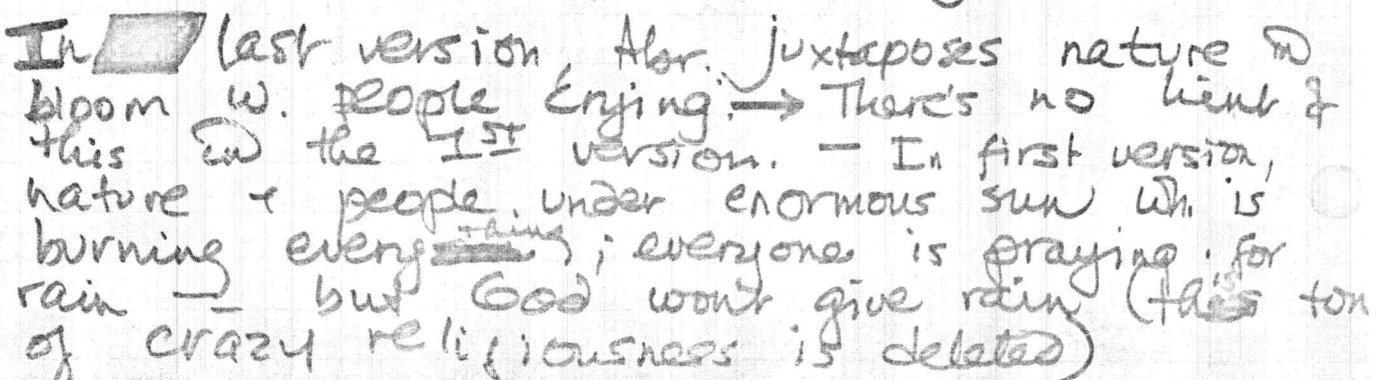 In last version, Abr. juxtaposes nature in
bloom w. people crying. → There's no hint of
this in the 1ST version. - In first version,
nature + people under enormous sun wh. is
burning everything; everyone is praying for
rain — but God won't give rain (this ton
of crazy religiousness is deleted)